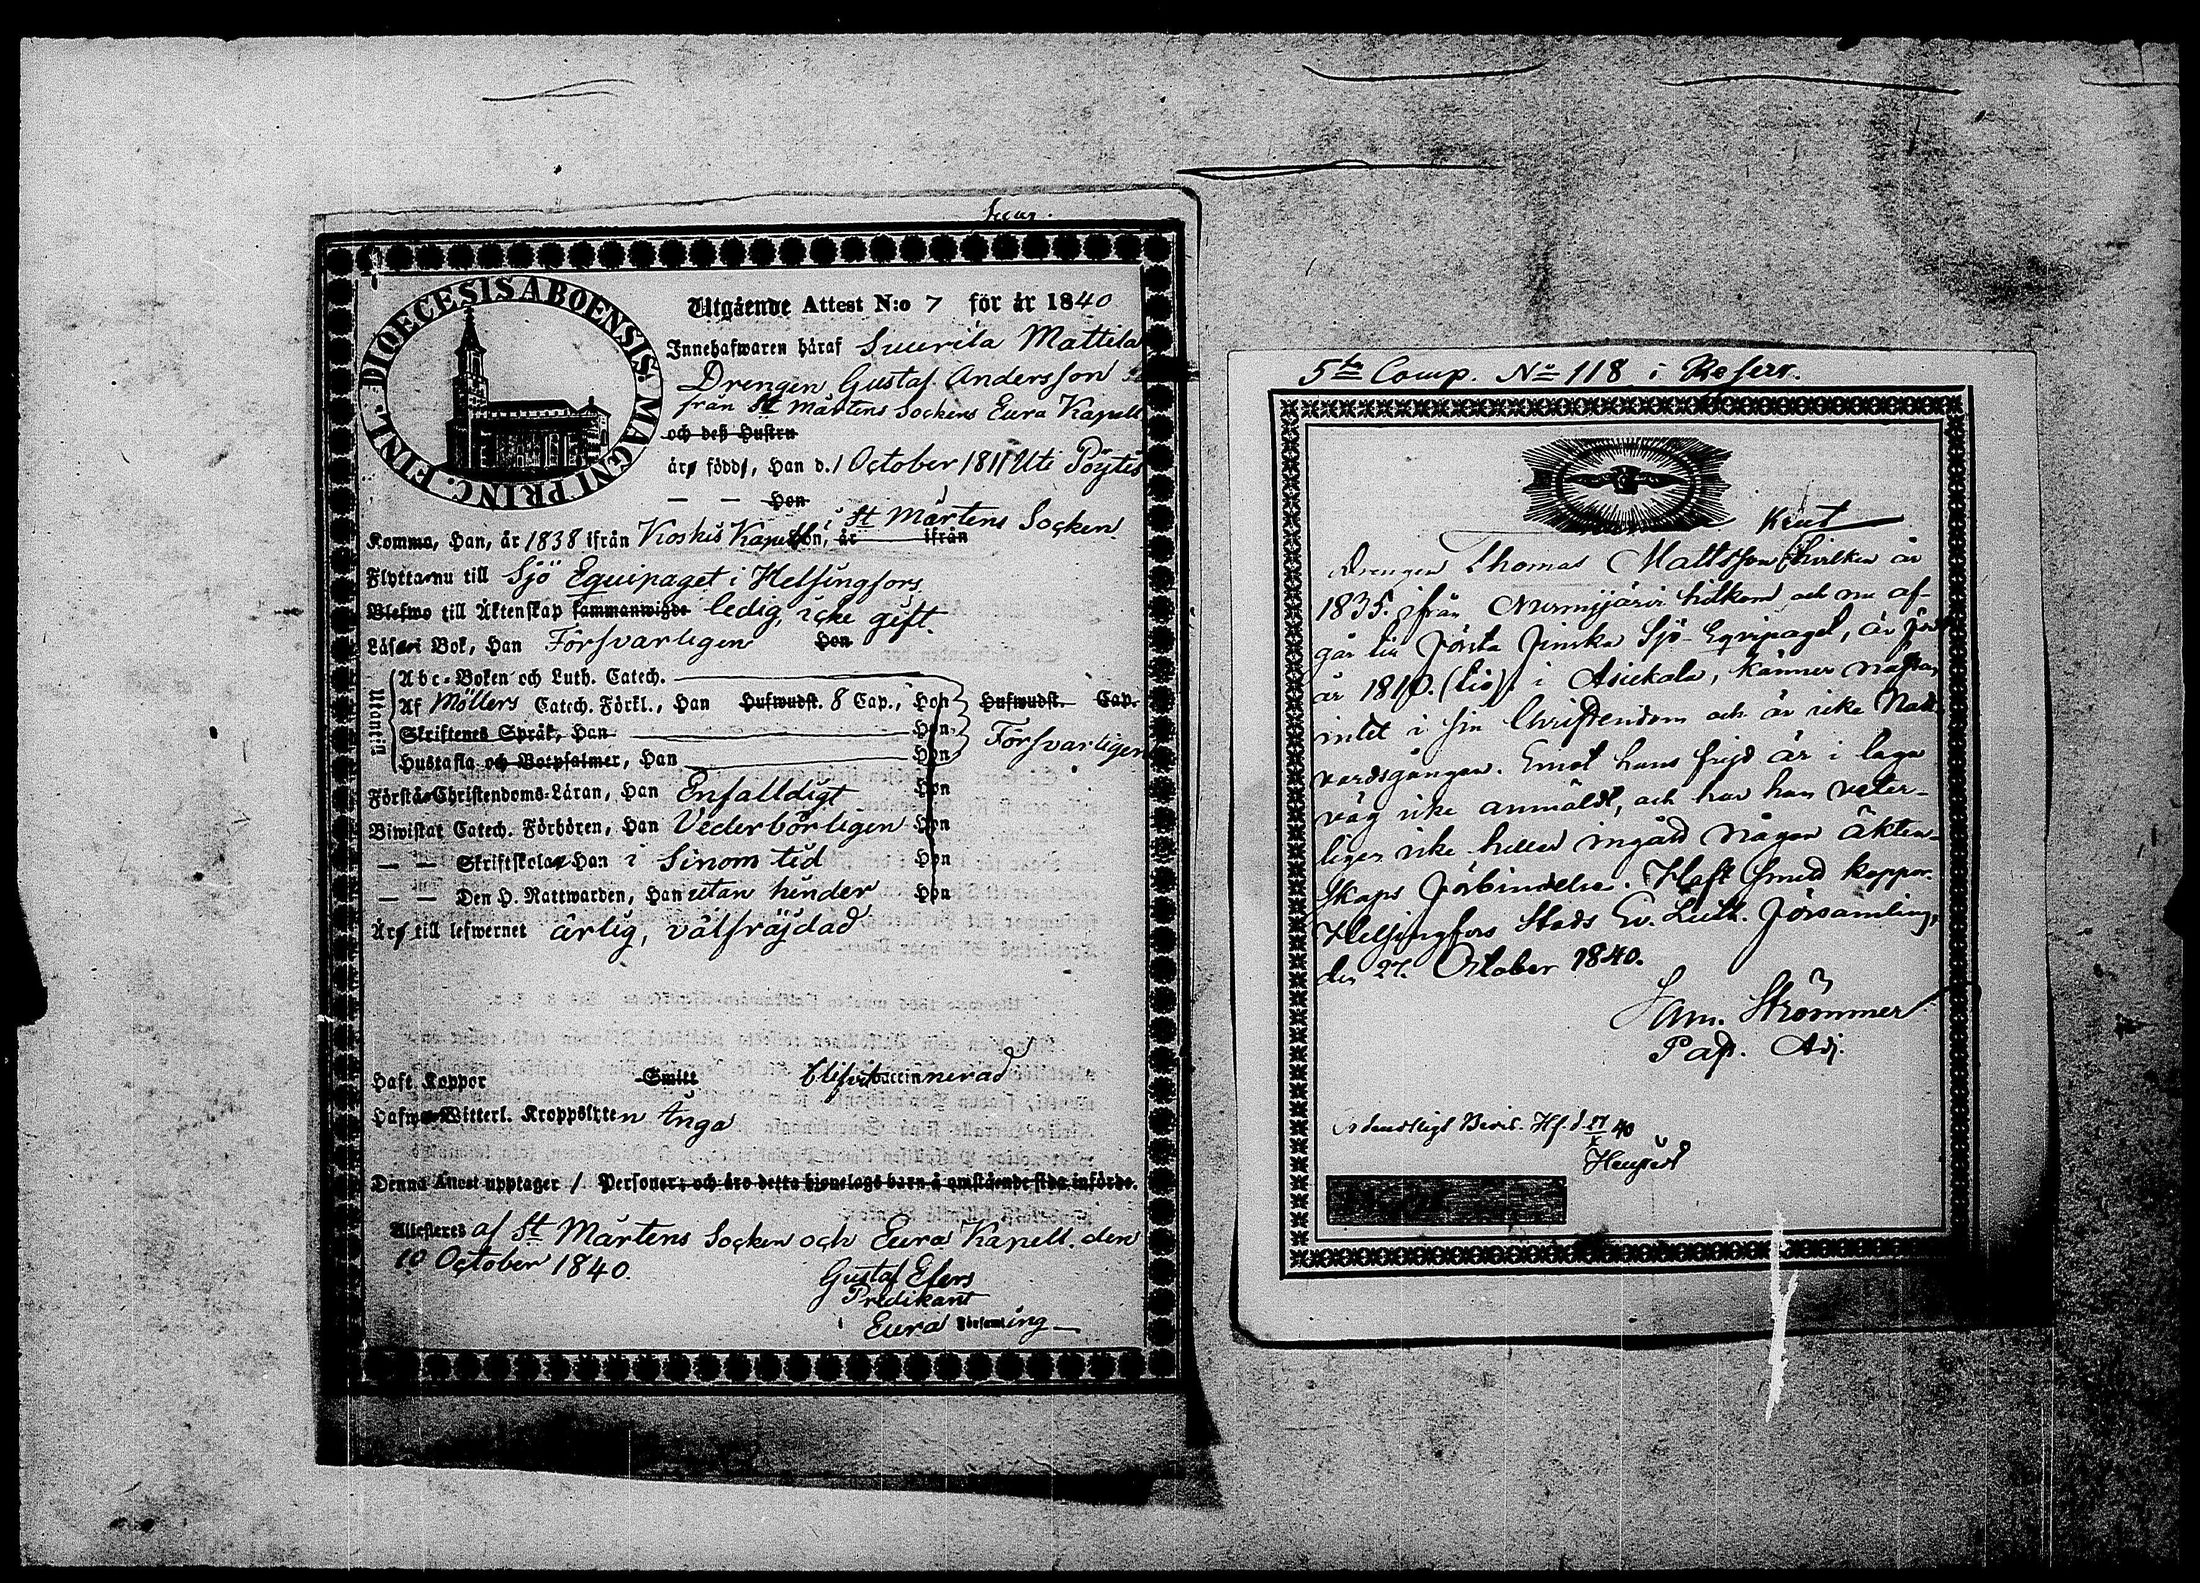 DIOECESIS ABOENSIS MAGNI PRINC. FINL.
Utgående Attest N:o 7 för år 1840
Innehafwaren häraf Suurila Mattila
Drengen Gustaf Andersson
från St Mårtens Sockens Eura Kapell
och deß Hustru
äro födde, Han d. 1 October 1811 Uti Pöytis
— — Hon
Komma, Han, år 1838 ifrån Koskis Kapell i St Mårtens Socken. Hon, år ifrån
Flytta nu till Sjö Equipaget i Helsingfors
Blefwo till Äktenskap sammanwigde ledig, icke gift.
Läsa i Bok, Han Försvarligen Hon
Utantill
Abc-Boken och Luth. Catech.
Af Möllers Catech. Förkl., Han Hufwudst. 8 Cap., Hon Hufwudst. Cap.
Skriftenes Språk, Han Hon Försvarligen
Hustafla och Botpsalmer, Han Hon
Förstå Christendoms-Läran, Han Enfalldigt Hon
Biwistat Catech. Förhören, Han Vederbörligen Hon
— — Skriftskolan Han i Sinom tid Hon
— — Den H. Nattwarden, Han utan hinder Hon
Äro till lefwernet ärlig, välfräjdad
Haft Koppor Smitt blifvit vaccinnerad
Hafwa Witterl. Kroppslyten Inga
Denna Attest upptager 1 Personer; och äro detta hjonelags barn å omstående sida införde.
Attesteres af St Mårtens Socken och Eura Kapell. den
10 October 1840.
Gustaf Efers
Predikant
i Eura Församling
5te Comp. No 118 i Reserv.
Knut
Drengen Thomas Mattsson hvilken år
1835. ifrån Nurmijärvi hitkom och nu af-
går till Första Finska Sjö-Eqvipaget, är född
år 1810. (tio) i Asickala, känner nästan
intet i sin Christendom och är icke Natt-
vardsgången. Emot hans frejd är i laga
väg icke anmäldt, och har han veter-
ligen icke heller ingått någon äkten-
skaps förbindelse. Haft smitt koppor.
Helsingfors Stads Ev. Luth. Församling,
den 27. October 1840.
Sam. Strömmer
Past. Adj.
Hf. d. 27/X 40